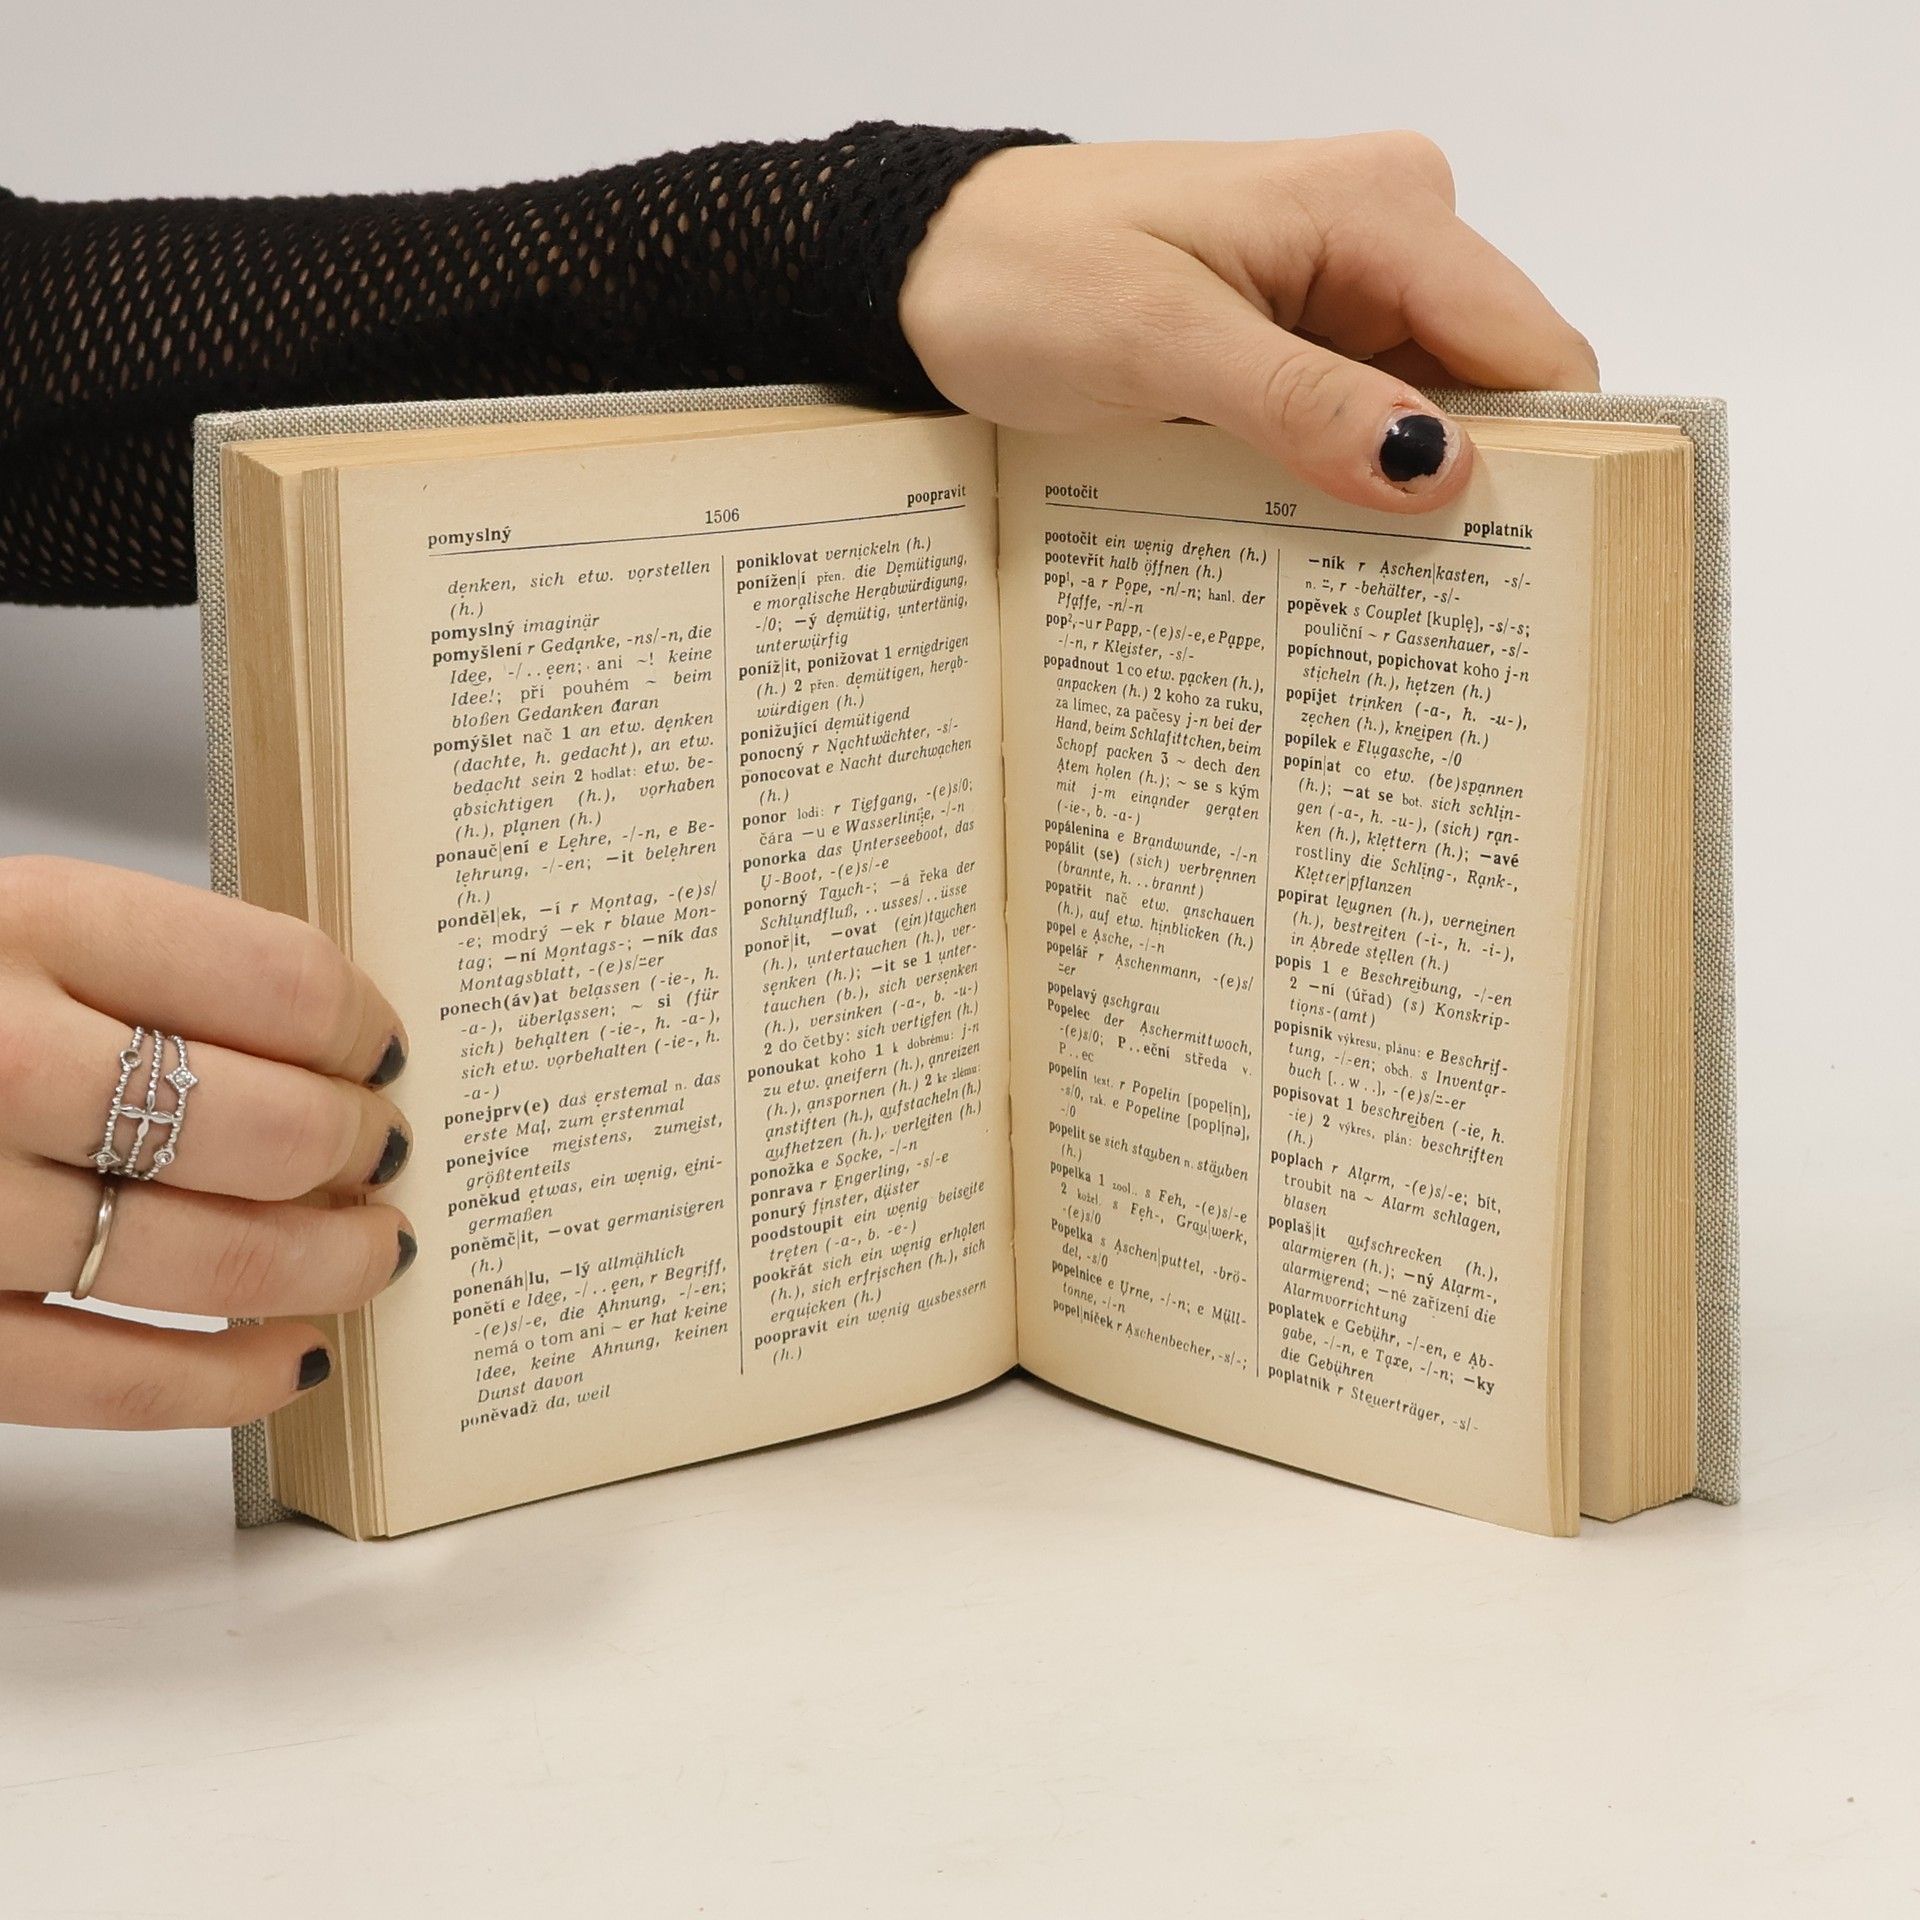 pomyslný 1506 poopravit
denken, sich etw. vorstellen
(h.)
pomyslný imaginär
pomyšlení r Gedanke, -ns/-n, die
Idee, -/..een; ani ~! keine
Idee!; při pouhém ~ beim
bloßen Gedanken daran
pomýšlet nač 1 an etw. denken
(dachte, h. gedacht), an etw.
bedacht sein 2 hodlat: etw. be-
absichtigen (h.), vorhaben
(h.), planen (h.)
ponauč|ení e Lehre, -/-n, e Be-
lehrung, -/-en; —it belehren
(h.)
ponděl|ek, —í r Montag, -(e)s/
-e; modrý —ek r blaue Mon-
tag; —ní Montags-; —ník das
Montagsblatt, -(e)s/⸚er
ponech(áv)at belassen (-ie-, h.
-a-), überlassen; ~ si (für
sich) behalten (-ie-, h. -a-),
sich etw. vorbehalten (-ie-, h.
-a-)
ponejprv(e) das erstemal n. das
erste Mal, zum erstenmal
ponejvíce meistens, zumeist,
größtenteils
poněkud etwas, ein wenig, eini-
germaßen
poněmč|it, —ovat germanisieren
(h.)
ponenáh|lu, —lý allmählich
ponětí e Idee, -/..een, r Begriff,
-(e)s/-e, die Ahnung, -/-en;
nemá o tom ani ~ er hat keine
Idee, keine Ahnung, keinen
Dunst davon
poněvadž da, weil
poniklovat vernickeln (h.)
ponížen|í přen. die Demütigung,
e moralische Herabwürdigung,
-/0; —ý demütig, untertänig,
unterwürfig
poníž|it, ponižovat 1 erniedrigen
(h.) 2 přen. demütigen, herab-
würdigen (h.)
ponižující demütigend
ponocný r Nachtwächter, -s/-
ponocovat e Nacht durchwachen
(h.)
ponor lodi: r Tiefgang, -(e)s/0;
čára —u e Wasserlinie, -/-n
ponorka das Unterseeboot, das
U-Boot, -(e)s/-e
ponorný Tauch-; —á řeka der
Schlundfluß, ..usses/..üsse
ponoř|it, —ovat (ein)tauchen
(h.), untertauchen (h.), ver-
senken (h.); —it se 1 unter-
tauchen (b.), sich versenken
(h.), versinken (-a-, b. -u-)
2 do četby: sich vertiefen (h.)
ponoukat koho 1 k dobrému: j-n
zu etw. aneifern (h.), anreizen
(h.), anspornen (h.) 2 ke zlému:
anstiften (h.), aufstacheln (h.)
aufhetzen (h.), verleiten (h.)
ponožka e Socke, -/-n
ponrava r Engerling, -s/-e
ponurý finster, düster
poodstoupit ein wenig beiseite
treten (-a-, b. -e-)
pookřát sich ein wenig erholen
(h.), sich erfrischen (h.), sich
erquicken (h.)
poopravit ein wenig ausbessern
(h.)
pootočit 1507 poplatník
pootočit ein wenig drehen (h.)
pootevřít halb öffnen (h.)
pop¹, -a r Pope, -n/-n; hanl. der
Pfaffe, -n/-n
pop², -u r Papp, -(e)s/-e, e Pappe,
-/-n, r Kleister, -s/-
popadnout 1 co etw. packen (h.),
anpacken (h.) 2 koho za ruku,
za límec, za pačesy j-n bei der
Hand, beim Schlafittchen, beim
Schopf packen 3 ~ dech den
Atem holen (h.); ~ se s kým
mit j-m einander geraten
(-ie-, b. -a-)
popálenina e Brandwunde, -/-n
popálit (se) (sich) verbrennen
(brannte, h. ..brannt)
popatřit nač etw. anschauen
(h.), auf etw. hinblicken (h.)
popel e Asche, -/-n
popelář r Aschenmann, -(e)s/
⸚er
popelavý aschgrau
Popelec der Aschermittwoch,
-(e)s/0; P..eční středa v.
P..ec
popelín text. r Popelin [popelín],
-s/0, rak. e Popeline [poplínə],
-/0
popelit se sich stauben n. stäuben
(h.)
popelka 1 zool. s Feh, -(e)s/-e
2 kožel. s Feh-, Grau|werk,
-(e)s/0
Popelka s Aschen|puttel, -brö-
del, -s/0
popelnice e Urne, -/-n; e Müll-
tonne, -/-n
popel|níček r Aschenbecher, -s/-;
—ník r Aschen|kasten, -s/-
n. ⸚, r -behälter, -s/-
popěvek s Couplet [kuplé], -s/-s;
pouliční ~ r Gassenhauer, -s/-
popíchnout, popichovat koho j-n
sticheln (h.), hetzen (h.)
popíjet trinken (-a-, h. -u-),
zechen (h.), kneipen (h.)
popílek e Flugasche, -/0
popín|at co etw. (be)spannen
(h.); —at se bot. sich schlin-
gen (-a-, h. -u-), (sich) ran-
ken (h.), klettern (h.); —avé
rostliny die Schling-, Rank-,
Kletter|pflanzen
popírat leugnen (h.), verneinen
(h.), bestreiten (-i-, h. -i-),
in Abrede stellen (h.)
popis 1 e Beschreibung, -/-en
2 —ní (úřad) (s) Konskrip-
tions-(amt)
popisník výkresu, plánu: e Beschrif-
tung, -/-en; obch. s Inventar-
buch [..w..], -(e)s/⸚-er
popisovat 1 beschreiben (-ie, h.
-ie) 2 výkres, plán: beschriften
(h.)
poplach r Alarm, -(e)s/-e; bít,
troubit na ~ Alarm schlagen,
blasen
poplaš|it aufschrecken (h.),
alarmieren (h.); —ný Alarm-,
alarmierend; —né zařízení die
Alarmvorrichtung
poplatek e Gebühr, -/-en, e Ab-
gabe, -/-n, e Taxe, -/-n; —ky
die Gebühren
poplatník r Steuerträger, -s/-